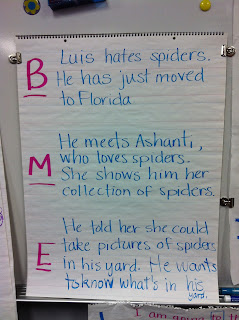 B
Luis hates spiders.
He has just moved
to Florida
M
He meets Ashanti,
who loves spiders.
She shows him her
collection of spiders.
E
He told her she could
take pictures of spiders
in his yard. He wants
to know what's in his
yard.
B
I am going to